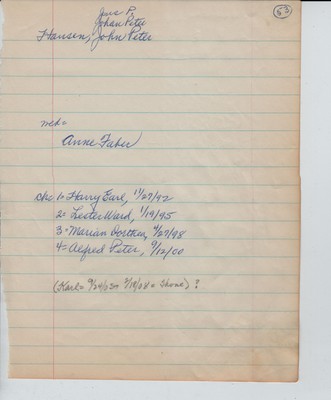 63
Jens P.
Johan Peter
Hansen, John Peter
med=
Anne Faber
chc 1= Harry Earl, 11/27/92
2= Lester Ward, 1/19/95
3= Marian Dorthea, 4/27/98
4= Alfred Peter, 9/12/00
(Karl= 9/24/05= 3/18/08=
) ?